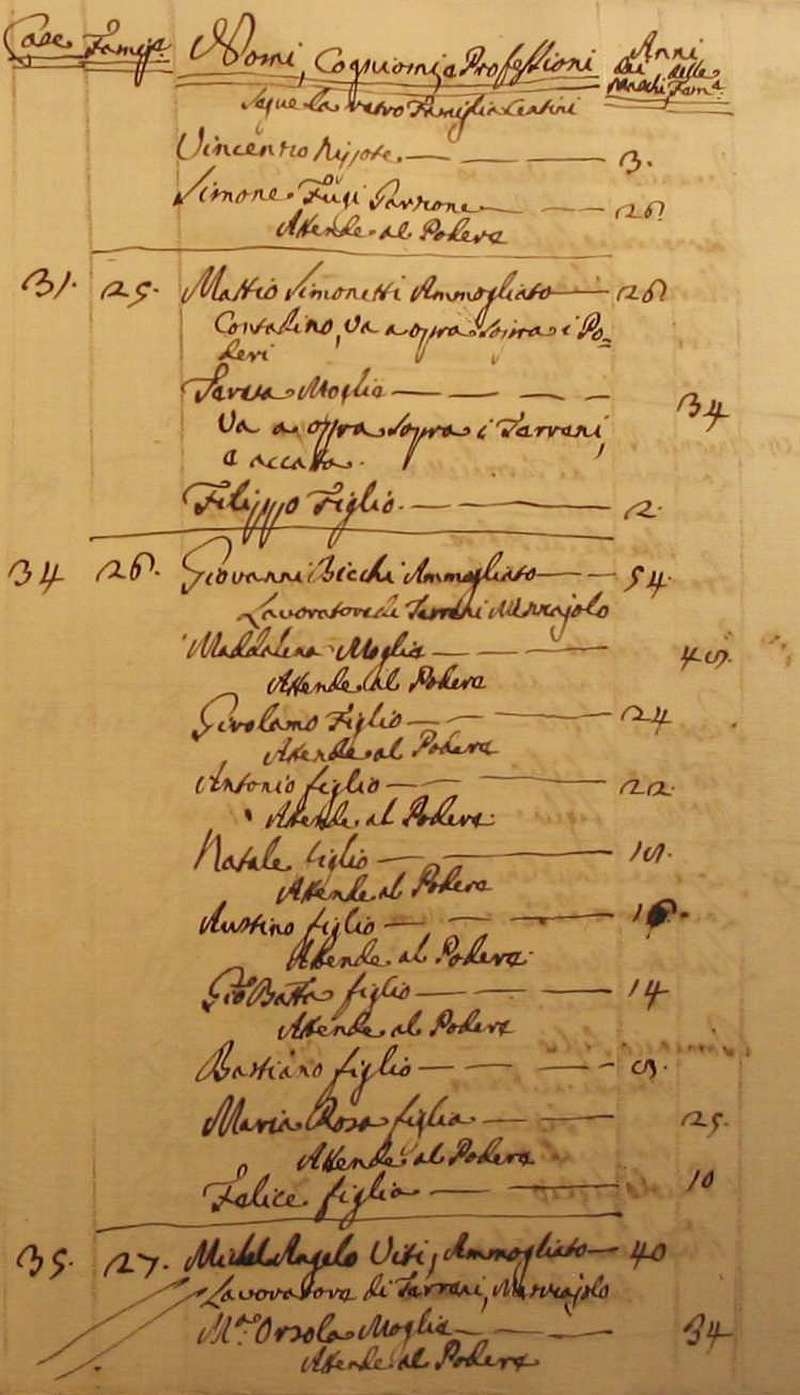 Case Famigl. Nomi, Cognomi, e Professioni Anni
dei delle
Maschi Fem.e
Segue la retro Famiglia Lentini
Vincentio Nipote. 3.
Simone Garzone. 26
Attende al Podere
31. 25. Mattio Simonetti Ammogliato 26
Contadino, va a opra sopra i Po=
deri
Teresa Moglie 34
Va a opra sopra i Terreni,
e accatta.
Filippo Figlio. 2.
34 26. Giovanni Bicchi Ammogliato 54.
Lavoratore di Terreni Mezzajolo
Maddalena Moglie 49.
Attende al Podere
Girolamo Figlio 24
Attende al Podere
Antonio figlio 22.
Attende al Podere
Natale figlio 19.
Attende al Podere
Austino figlio 16.
Attende al Podere
Gio Batta figlio 14
Attende al Podere
Bastiano figlio 9.
Maria Rosa figlia 25.
Attende al Podere
Felice figlia 10
35. 27. Michel Angelo Viti, Ammogliato 40
Lavoratore di Terreni, Mezzajolo
M.a Orsola Moglie 34
Attende al Podere